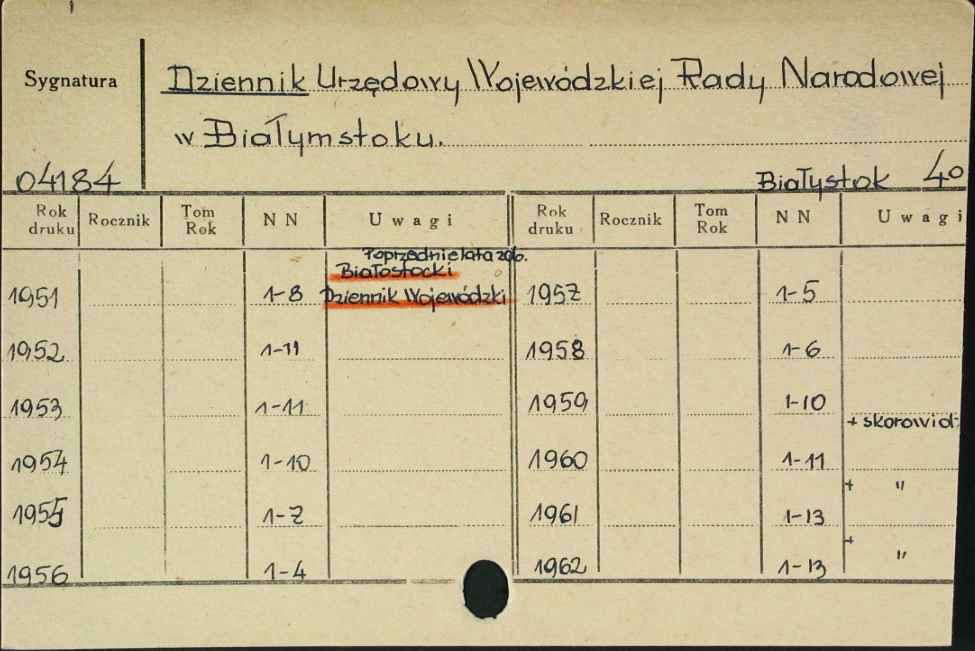 Sygnatura
Dziennik Urzędowy Wojewódzkiej Rady Narodowej
w Białymstoku.
04184
Białystok 4o
Rok druku Rocznik Tom Rok NN Uwagi Rok druku Rocznik Tom Rok NN Uwagi
Poprzednie lata zob.
Białostocki
1951 1-8 Dziennik Wojewódzki 1957 1-5
1952 1-11 1958 1-6
1953 1-11 1959 1-10
+ skorowidz
1954 1-10 1960 1-11
+ "
1955 1-7 1961 1-13
+ "
1956 1-4 1962 1-13